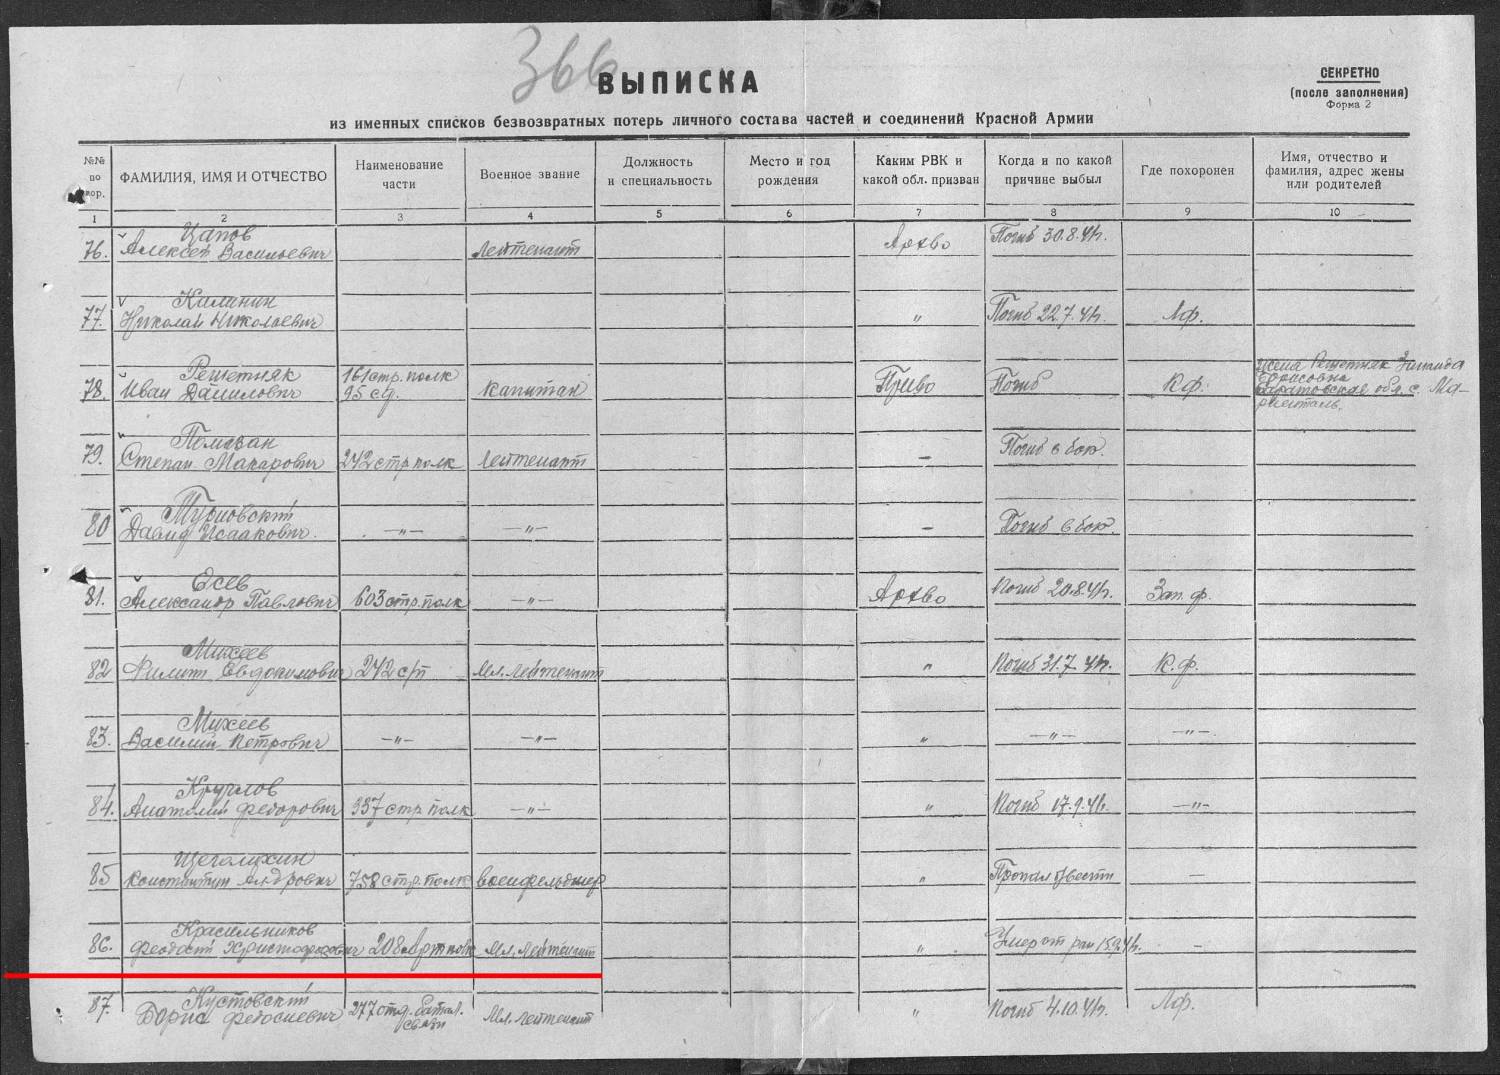 366
ВЫПИСКА
СЕКРЕТНО
(после заполнения)
Форма 2
из именных списков безвозвратных потерь личного состава частей и соединений Красной Армии
№№ по пор.
ФАМИЛИЯ, ИМЯ И ОТЧЕСТВО
Наименование части
Военное звание
Должность и специальность
Место и год рождения
Каким РВК и какой обл. призван
Когда и по какой причине выбыл
Где похоронен
Имя, отчество и фамилия, адрес жены или родителей
1 2 3 4 5 6 7 8 9 10
Цапов
76. Алексей Васильевич лейтенант Архво Погиб 30.8.41г.
Калинин
77. Николай Николаевич " Погиб 22.7.41г. Лф.
Решетняк 161 стр. полк жена Решетняк
78. Иван Данилович 95 сд. капитан Приво Погиб К.ф.
Борисовна
обл. с. Ма-
риенталь.
79. Степан Макарович 242 стр полк лейтенант — Погиб в бою.
80 Давид Исаакович. —"— —"— — Погиб в бою.
Есев
81. Александр Павлович 603 стр. полк —"— Архво Погиб 20.8.41г. Зап. ф.
Михеев
82 Филипп Евдокимович 242 с/п Мл. лейтенант " Погиб 31.7.41г. К.ф.
Михеев
83. Василий Петрович —"— —"— " —"— —"—
Круглов
84. Анатолий Федорович 337 стр. полк —"— " Погиб 17.9.41г. —"—
Щеголихин
85 Константин Андрович 758 стр. полк военфельдшер " Пропал б/вести —
Красильников
86. Феодосий Христофорович 208 арт полк Мл. лейтенант " Умер от ран 15.9.41г. —
Кустовский 277 отд. батал.
87. Борис Федосиевич связи Мл. лейтенант " Погиб 4.10.41г. Лф.